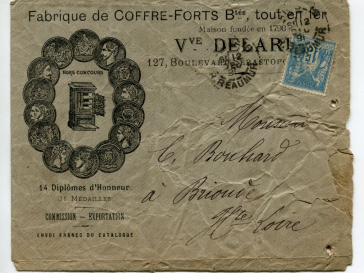 Fabrique de COFFRE-FORTS Btés, tout en fer
Maison fondée en 1790
Vve DELAR
127, BOULEVARD SÉBASTOPOL
HORS CONCOURS
14 Diplômes d'Honneur
MÉDAILLES
COMMISSION - EXPORTATION
ENVOI FRANCO DU CATALOGUE
R. REAUMUR
15
Monsieur
C. Bouhard
à Brioude
Hte Loire